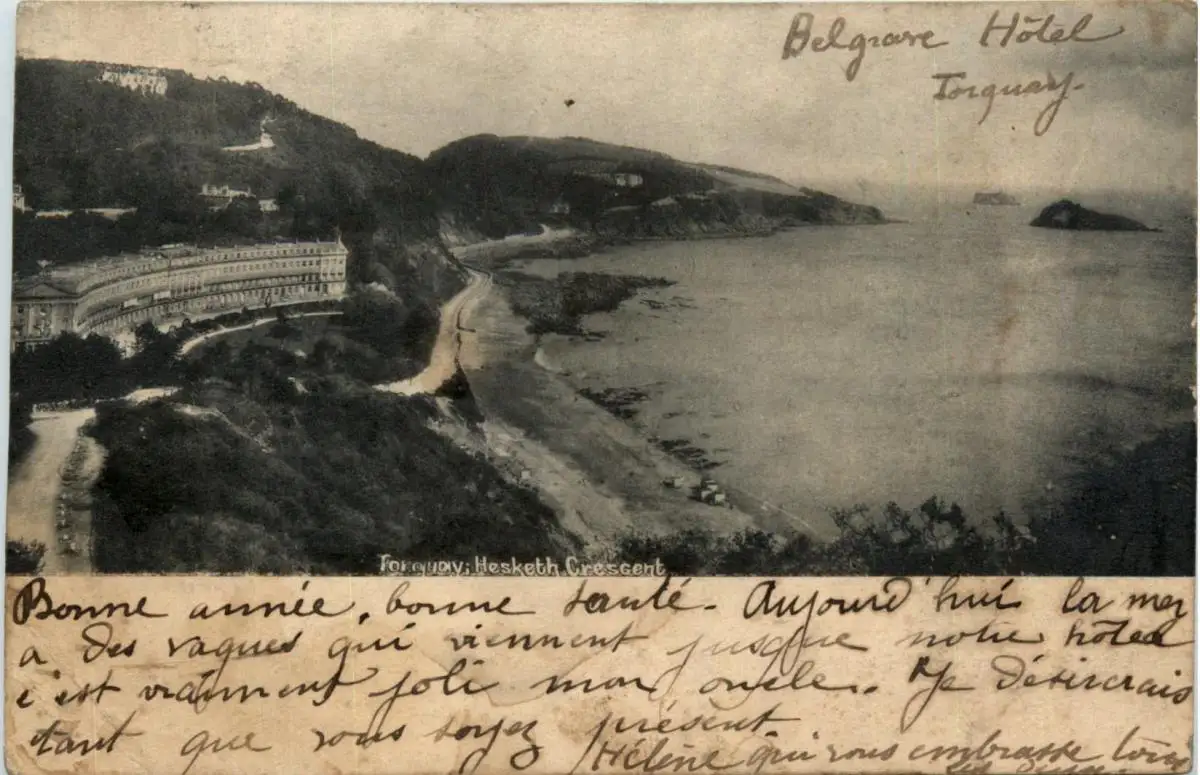 Belgrave Hôtel
Torquay.
Torquay; Hesketh Crescent
Bonne année, bonne santé. Aujourd'hui la mer
a des vagues qui viennent jusque notre hôtel
c'est vraiment joli mon oncle. Je désirerais
tant que vous soyez présent.
Hélène qui vous embrasse tous